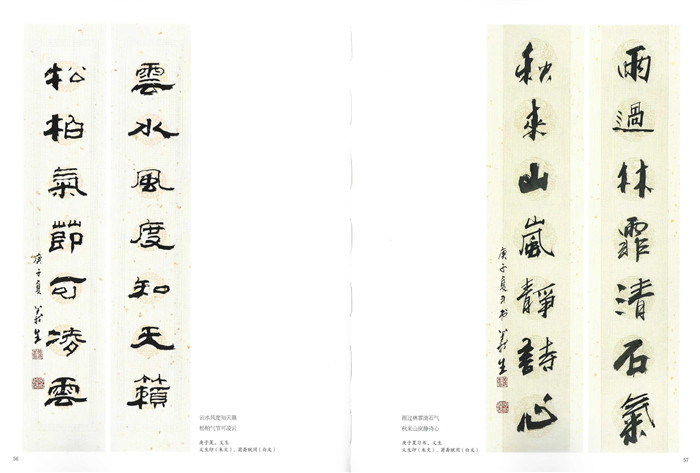 雲水風度知天籟
松柏氣節可凌雲
庚子夏 義生
云水风度知天籁
松柏气节可凌云
庚子夏，义生
义生印（朱文），（白文）
56
雨過林霏清石氣
秋來山嵐靜詩心
庚子夏月书 義生
雨过林霏清石气
秋来山岚静诗心
庚子夏月书，义生
义生印（朱文），（白文）
57